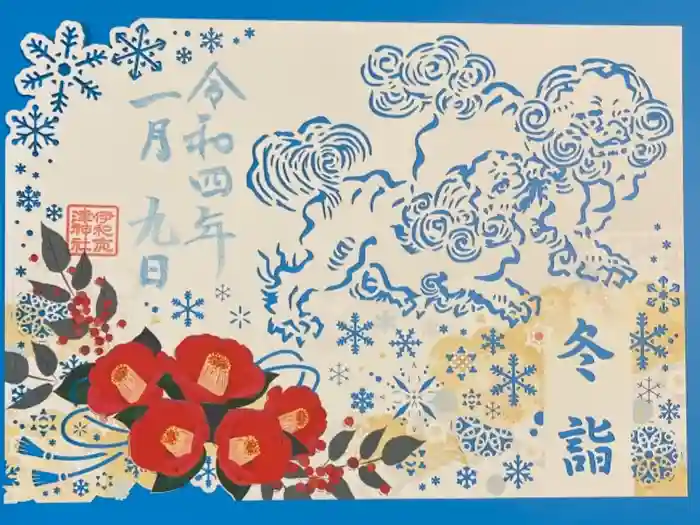 令和四年
一月九日
伊和志
津神社
冬詣